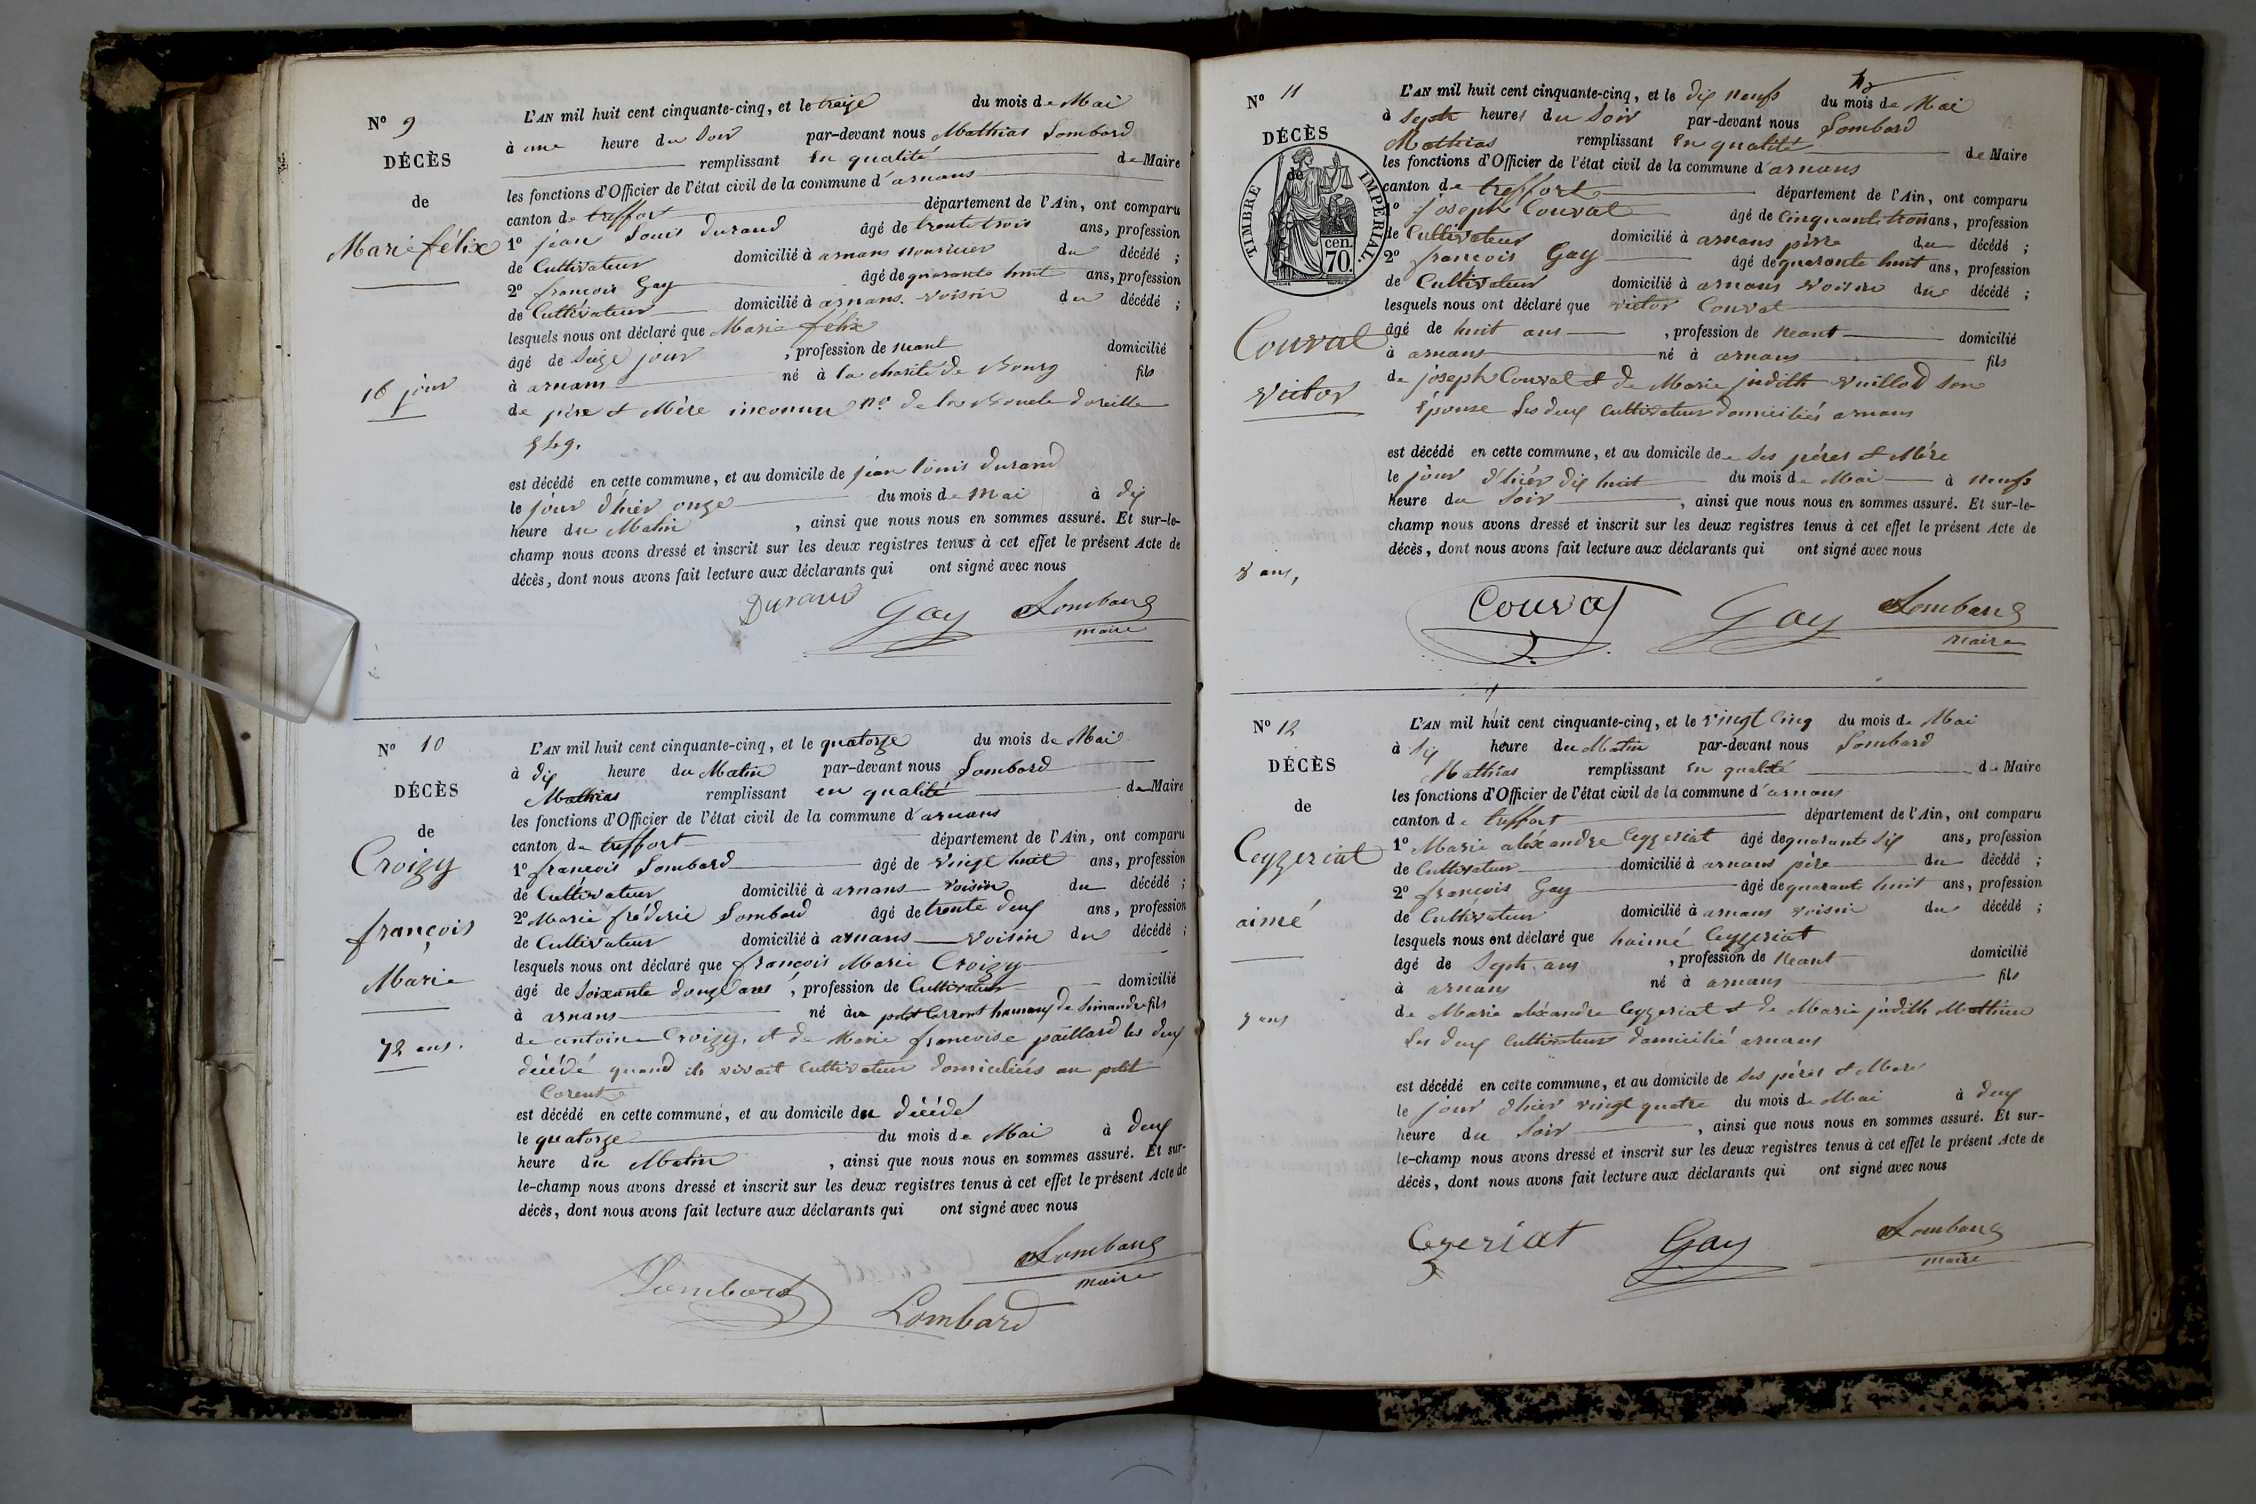 N° 9
DÉCÈS
de
Marie félix
16 jour
L'AN mil huit cent cinquante-cinq, et le treize du mois de Mai
à une heure du Soir par-devant nous Mathias Lombard
remplissant en qualité de Maire
les fonctions d'Officier de l'état civil de la commune d'arnans
canton de treffort département de l'Ain, ont comparu
1° jean Louis durand âgé de trente trois ans, profession
de Cultivateur domicilié à arnans nourricier du décédé ;
2° francois Gay âgé de quarante huit ans, profession
de Cultivateur domicilié à arnans voisin du décédé ;
lesquels nous ont déclaré que Marie félix
âgé de Seize jour , profession de neant domicilié
à arnans né à la charité de Bourg fils
de père et Mère inconnu n° de la Boucle doreille
549.
est décédé en cette commune, et au domicile de jean louis durand
le jour d'hier onze du mois de mai à dix
heure du Matin , ainsi que nous nous en sommes assuré. Et sur-le-
champ nous avons dressé et inscrit sur les deux registres tenus à cet effet le présent Acte de
décès, dont nous avons fait lecture aux déclarants qui ont signé avec nous
Durand Gay Lombard
maire
N° 10
DÉCÈS
de
Croizy
françois
Marie
72 ans.
L'AN mil huit cent cinquante-cinq, et le quatorze du mois de Mai
à dix heure du Matin par-devant nous Lombard
Mathias remplissant en qualité de Maire
les fonctions d'Officier de l'état civil de la commune d'arnans
canton de treffort département de l'Ain, ont comparu
1° francois Lombard âgé de vingt huit ans, profession
de Cultivateur domicilié à arnans voisin du décédé ;
2° Marie fréderic Lombard âgé de trente deux ans, profession
de Cultivateur domicilié à arnans voisin du décédé ;
lesquels nous ont déclaré que françois Marie Croizy
âgé de Soixante douze ans , profession de Cultivateur domicilié
à arnans né au petit Corrent hameau de Simandre fils
de antoine Croizy, et de Marie francoise paillard les deux
décédé quand ils vivait Cultivateur domiciliés au petit
Corent
est décédé en cette commune, et au domicile du décédé
le quatorze du mois de Mai à deux
heure du Matin , ainsi que nous nous en sommes assuré. Et sur-
le-champ nous avons dressé et inscrit sur les deux registres tenus à cet effet le présent Acte de
décès, dont nous avons fait lecture aux déclarants qui ont signé avec nous
Lombard
maire
Lombard Lombard
N° 11
DÉCÈS
de
TIMBRE IMPÉRIAL.
cen.
70.
Couval
victor
8 ans,
L'AN mil huit cent cinquante-cinq, et le dix neufs du mois de Mai
à Septh heures du Soir par-devant nous Lombard
Mathias remplissant en qualité de Maire
les fonctions d'Officier de l'état civil de la commune d'arnans
canton de treffort département de l'Ain, ont comparu
1° joseph Couval âgé de Cinquante trois ans, profession
de Cultivateur domicilié à arnans père du décédé ;
2° francois Gay âgé de quarante huit ans, profession
de Cultivateur domicilié à arnans voisin du décédé ;
lesquels nous ont déclaré que victor Couval
âgé de huit ans , profession de neant domicilié
à arnans né à arnans fils
de joseph Couval et de Marie judith vuillod son
épouse Les deux cultivateur domiciliés arnans
est décédé en cette commune, et au domicile de ses péres et Mére
le jour d'hier dix huit du mois de Mai à neufs
heure du Soir , ainsi que nous nous en sommes assuré. Et sur-le-
champ nous avons dressé et inscrit sur les deux registres tenus à cet effet le présent Acte de
décès, dont nous avons fait lecture aux déclarants qui ont signé avec nous
Couval Gay Lombard
maire
N° 12
DÉCÈS
de
Ceyzeriat
aimé
7 ans
L'AN mil huit cent cinquante-cinq, et le vingt Cinq du mois de Mai
à dix heure du Matin par-devant nous Lombard
Mathias remplissant en qualité de Maire
les fonctions d'Officier de l'état civil de la commune d'arnans
canton de treffort département de l'Ain, ont comparu
1° Marie aléxandre Ceyzeriat âgé de quarante dix ans, profession
de Cultivateur domicilié à arnans père du décédé ;
2° françois Gay âgé de quarante huit ans, profession
de Cultivateur domicilié à arnans voisin du décédé ;
lesquels nous ont déclaré que haimé Ceyzeriat
âgé de Septh ans , profession de Neant domicilié
à arnans né à arnans fils
de Marie aléxandre Ceyzeriat et de Marie judith Mathieu
Les deux Cultivateur domicilié arnans
est décédé en cette commune, et au domicile de ses péres et Mere
le jour d'hier vingt quatre du mois de Mai à deux
heure du Soir , ainsi que nous nous en sommes assuré. Et sur-
le-champ nous avons dressé et inscrit sur les deux registres tenus à cet effet le présent Acte de
décès, dont nous avons fait lecture aux déclarants qui ont signé avec nous
Cezeriat Gay Lombard
maire